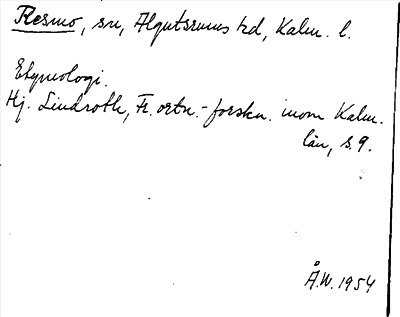 Resmo, sn, Algutsrums hd, Kalm. l.
Etymologi.
Hj. Lindroth, Fr. ortn.-forskn. inom Kalm.
län, s. 9.
Å.W. 1954